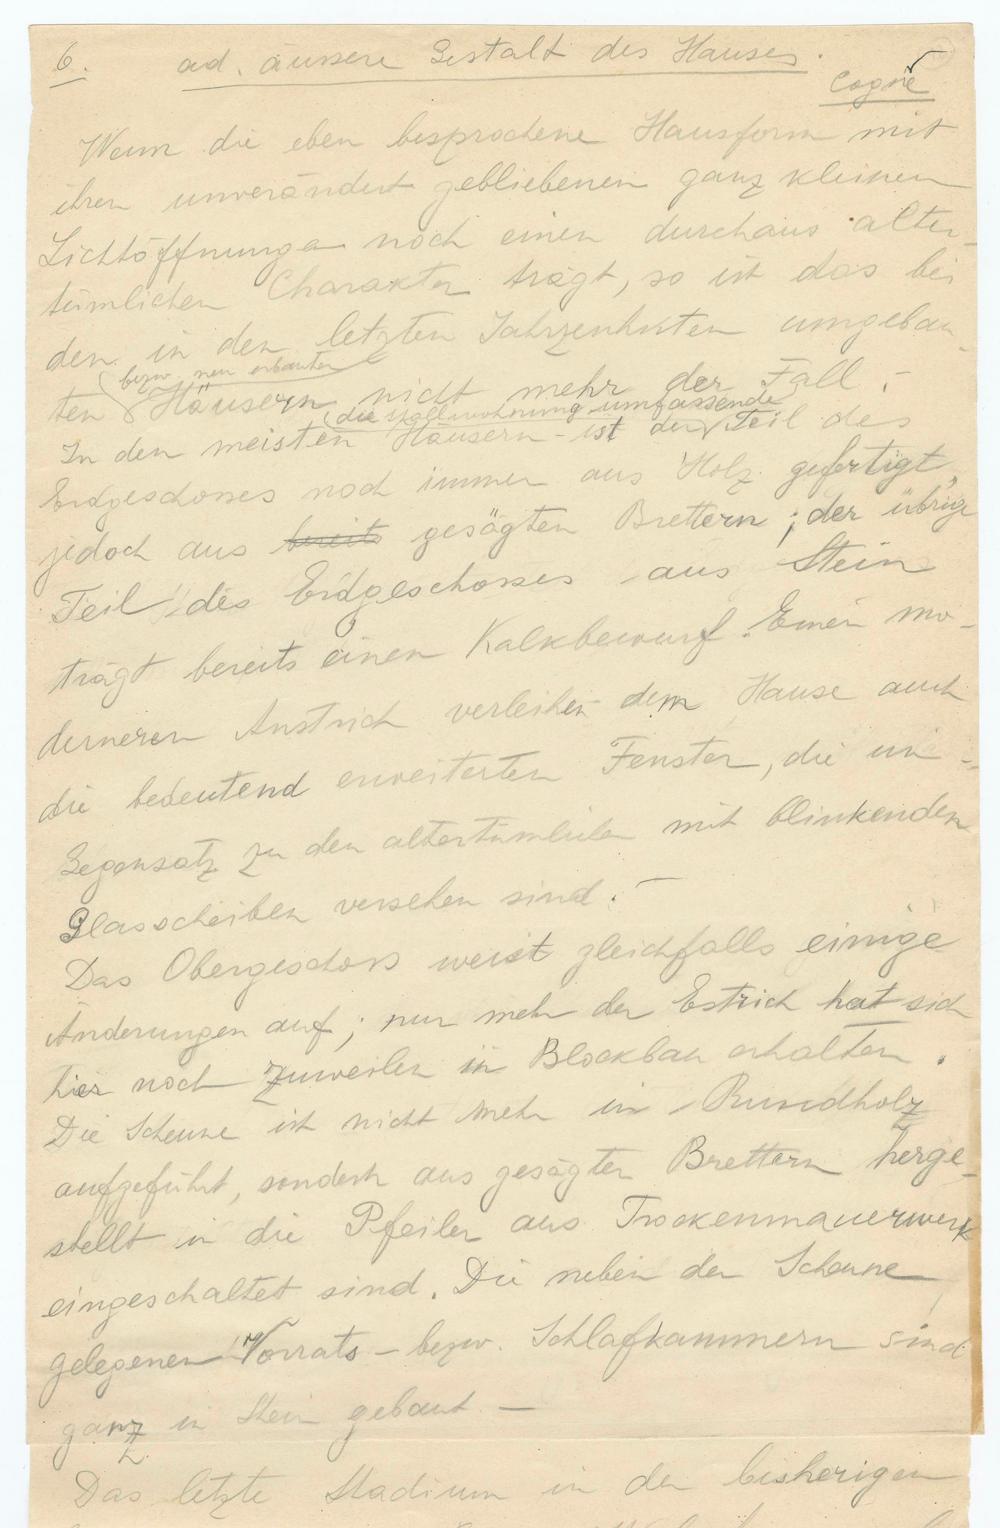 6. ad. äussere Gestalt des Hauses.
Cogne
Wenn die eben besprochene Hausform mit
ihren unverändert gebliebenen ganz kleinen
Lichtöffnungen noch einen durchaus alter-
tümlichen Charakter trägt, so ist das bei
den in den letzten Jahrzenhnten umgebau-
bezw. neu erbauten
ten Häusern nicht mehr der Fall.-
die Stallwohnung umfassende
In den meisten Häusern ist der Teil des
Erdgeschosses noch immer aus Holz gefertigt,
jedoch aus bereits gesägten Brettern; der übrige
Teil des Erdgeschosses aus Stein
trägt bereits einen Kalkbewurf. Einen mo-
derneren Anstrich verleihen dem Hause auch
die bedeutend erweiterten Fenster, die im
Gegensatz zu den altertümlichen mit blinkenden
Glasscheiben versehen sind.-
Das Obergeschoss weist gleichfalls einige
Änderungen auf; nur mehr der Estrich hat sich
hier noch zuweilen in Blockbau erhalten.
Die Scheune ist nicht mehr in Rundholz
aufgeführt, sondern aus gesägten Brettern herge-
stellt in die Pfeiler aus Trockenmauerwerk
eingeschaltet sind. Die neben der Scheune
gelegenen Vorrats- bezw. Schlafkammern sind
ganz in Stein gebaut.-
Das letzte Stadium in der bisherigen